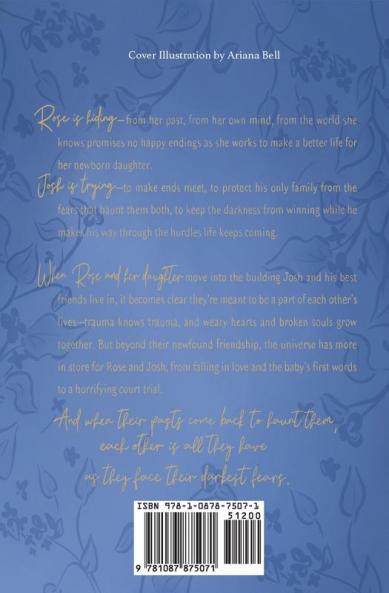 Cover Illustration by Ariana Bell
Rose is hiding—from her past, from her own mind, from the world she
knows promises no happy endings as she works to make a better life for
her newborn daughter.
Josh is trying—to make ends meet, to protect his only family from the
fears that haunt them both, to keep the darkness from winning while he
makes his way through the hurdles life keeps coming.
When Rose and her daughter move into the building Josh and his best
friends live in, it becomes clear they're meant to be a part of each other's
lives—trauma knows trauma, and weary hearts and broken souls grow
together. But beyond their newfound friendship, the universe has more
in store for Rose and Josh, from falling in love and the baby's first words
to a horrifying court trial.
And when their pasts come back to haunt them,
each other is all they have
as they face their darkest fears.
ISBN 978-1-0878-7507-1
51200
9 781087 875071